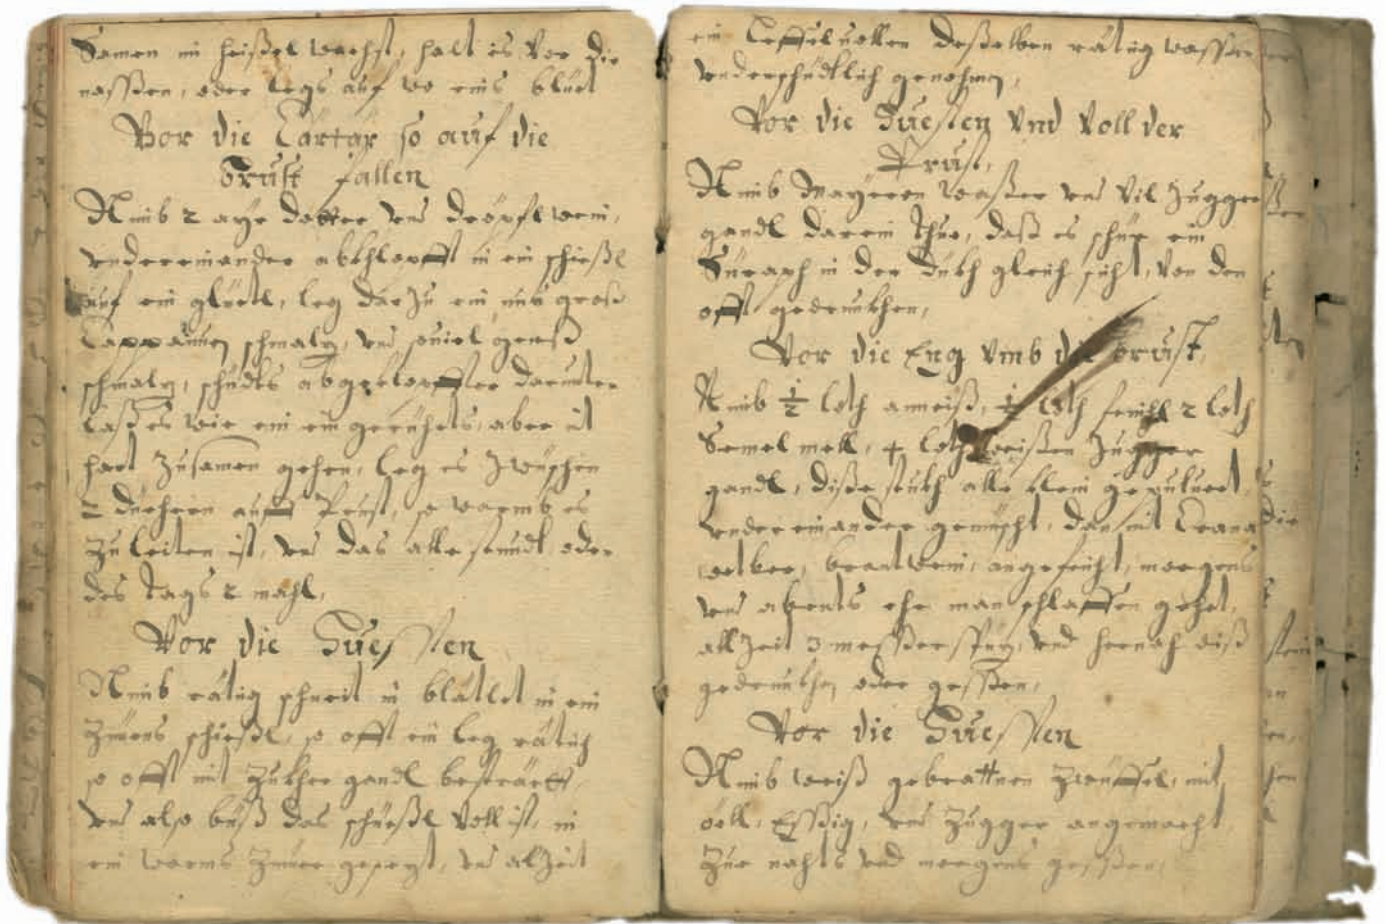 Samen in heißel wachst, halt es vor die
nassßen, oder legs auf wo eins bluet
Vor die Cartar so auf die
Brust fallen
Nimb 2 ayr dotter und tröpfl wein,
undereinander abkhlopfft in ein schießl
auf ein glüetl, leg darzu ein nuß groß
Cappaunen schmalz, und souiel genß
schmalz, schüdts abgeklopffter darunter
laß es wie ein eingerüehrts, aber it
hart zusamen gehen, leg es zwüschen
2 düecher auff Prust, so warmb es
zu leiten ist, und das alle stundt oder
des tags 2 mahl,
Vor die Huessten
Nimb rätig schneit in blätlet in ein
Zinens schießl, so offt ein leg rätich
so offt mit Zukher gandl besträet,
und also büß das schießl voll ist, in
ein warms Zimer gesezt, und alzeit
ein leffeluollen deßelben rätig wasser
underschüdtlich genohmen,
Vor die Huesten und Voll der
Prust,
Nimb Mayeron waßer und vil Zugger
gandl darein thue, daß es schier ein
Süraph in der dükh gleich sicht, von den
offt gedrunkhen,
Vor die Eng umb die brust,
Nimb ½ loth aneiß, ½ loth fenichl 2 loth
Semel mell, 4 loth weißen Zugger
gandl, diße stukh alle klein gepuluert,
undereinander gemischt, dan mit Crana
wetber, brantwein, angefeicht, morgens
und abents ehe man schlaffen gehet,
allzeit 3 messßerspüz, und hernach diß
gedrunkhen oder gessßen,
Vor die Huessten
Nimb weiß gebrattnen Zwüffel, mit
öell, Essßig, und Zugger angemacht,
Zue nachts und morgens gessßen,